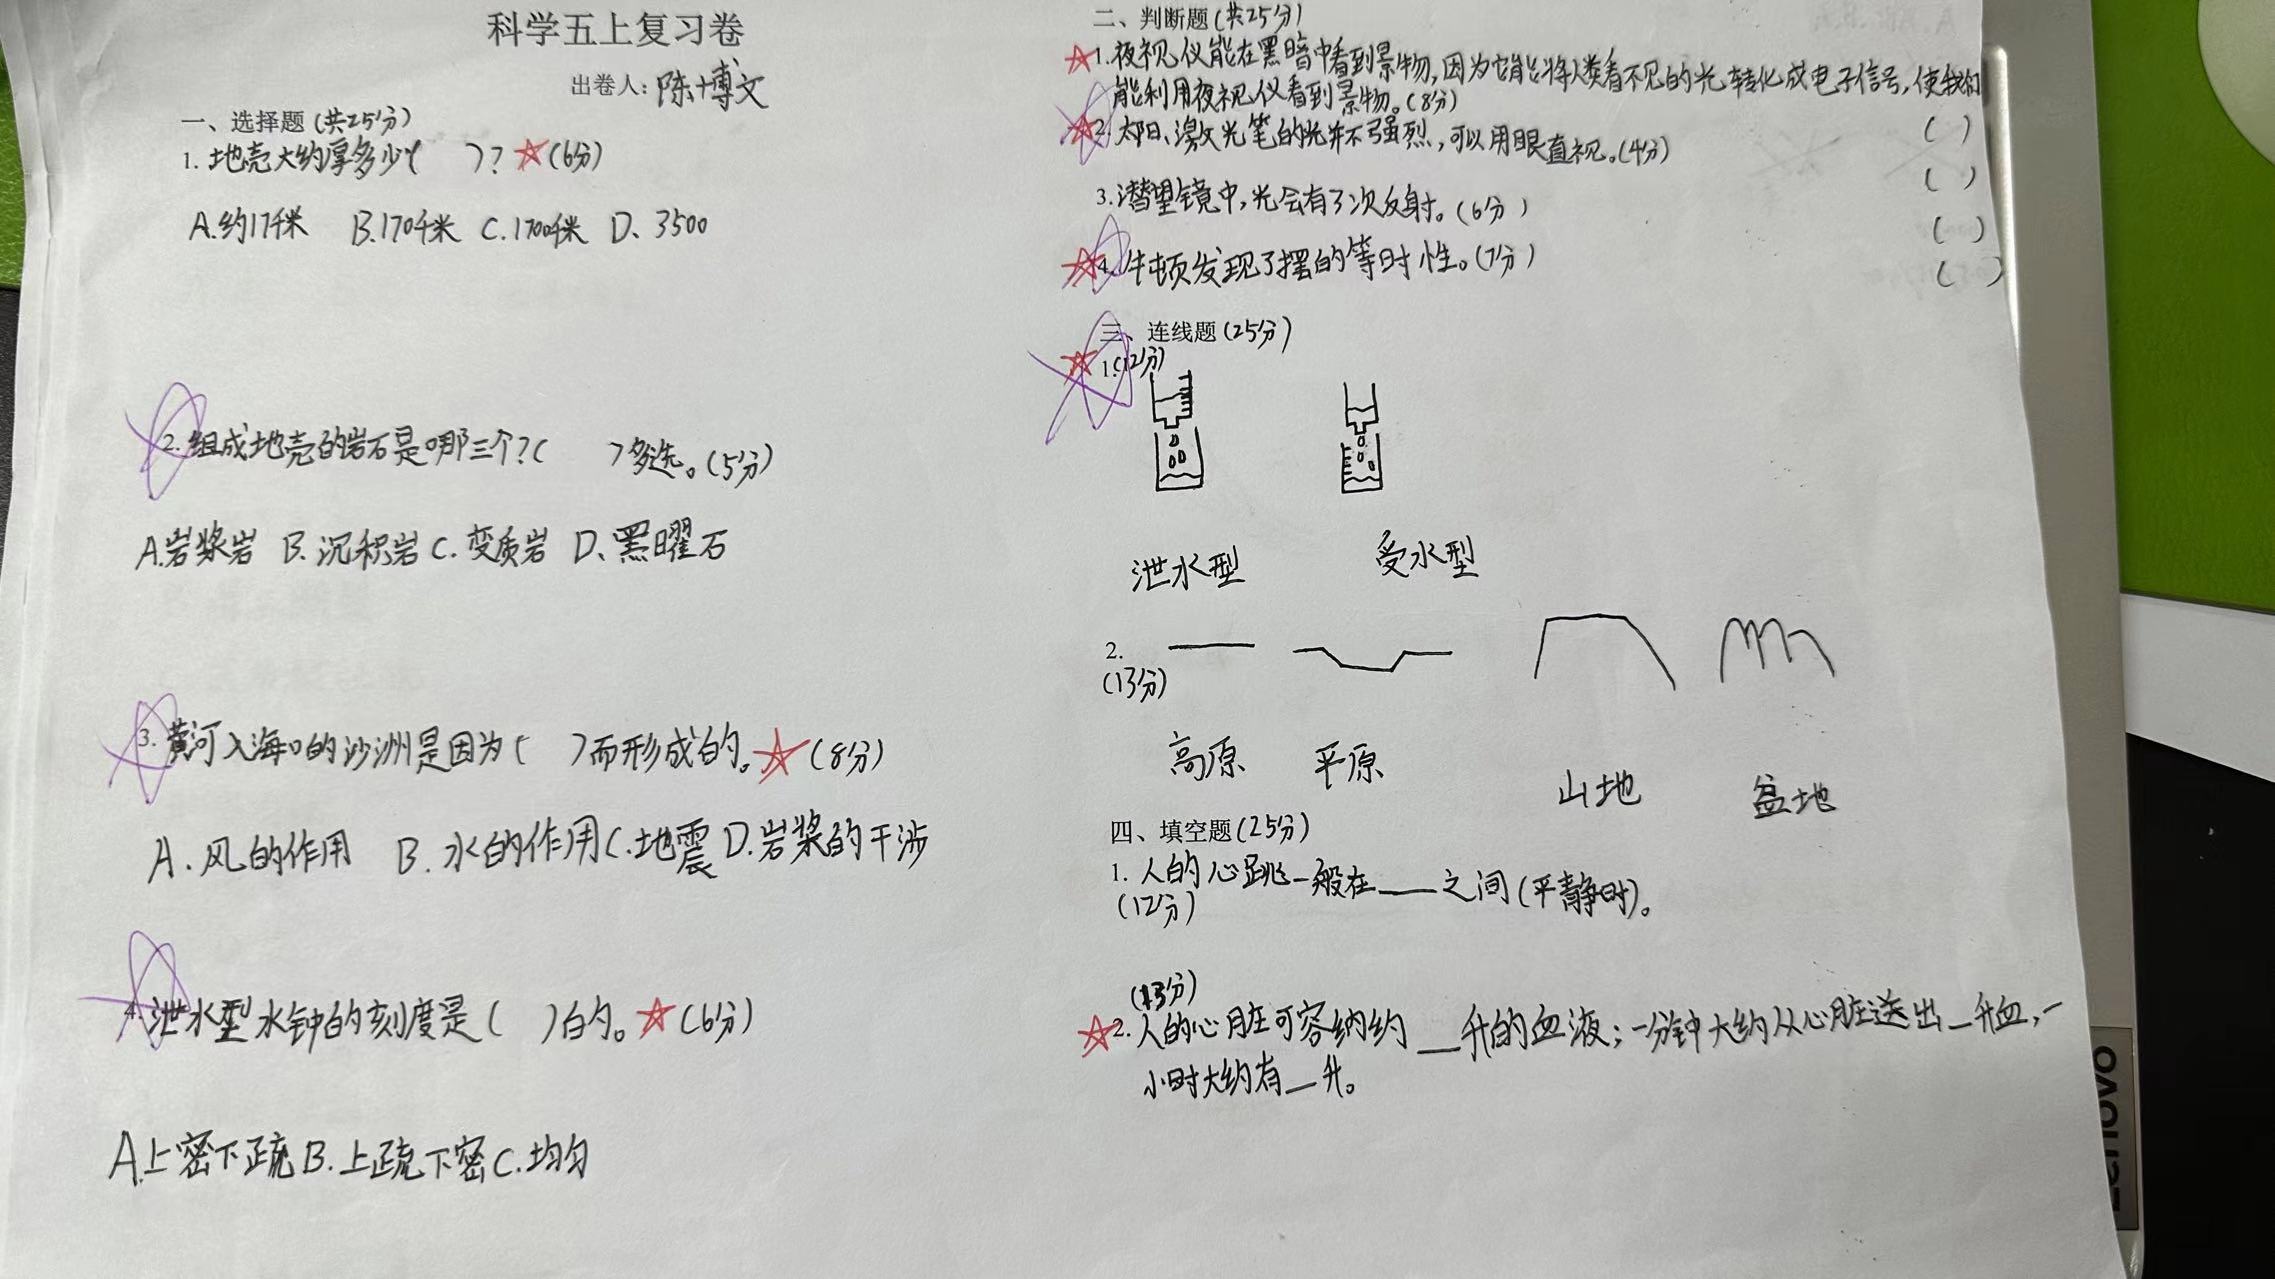 科学五上复习卷
出卷人：陈博文
一、选择题(共25分)
1. 地壳大约厚多少( )?☆(6分)
A.约17千米 B.170千米 C.1700千米 D、3500
2. 组成地壳的岩石是哪三个?( )多选。(5分)
A.岩浆岩 B.沉积岩 C.变质岩 D、黑曜石
3. 黄河入海口的沙洲是因为( )而形成的。☆(8分)
A.风的作用 B.水的作用 C.地震 D.岩浆的干涉
4. 泄水型水钟的刻度是( )的。☆(6分)
A.上密下疏 B.上疏下密 C.均匀
二、判断题(共25分)
☆1.夜视仪能在黑暗中看到景物,因为它能将人类看不见的光转化成电子信号,使我们
能利用夜视仪看到景物。(8分) ( )
☆2.太阳、激光笔的光并不强烈,可以用眼直视。(4分) ( )
3.潜望镜中,光会有了次反射。(6分) ( )
☆4.牛顿发现了摆的等时性。(7分) ( )
三、连线题(25分)
☆1.(12分)
泄水型 受水型
2.
(13分)
高原 平原 山地 盆地
四、填空题(25分)
1. 人的心跳一般在___之间(平静时)。
(12分)
(13分)
☆2.人的心脏可容纳约__升的血液;一分钟大约从心脏送出_升血,一
小时大约有_升。
lenovo